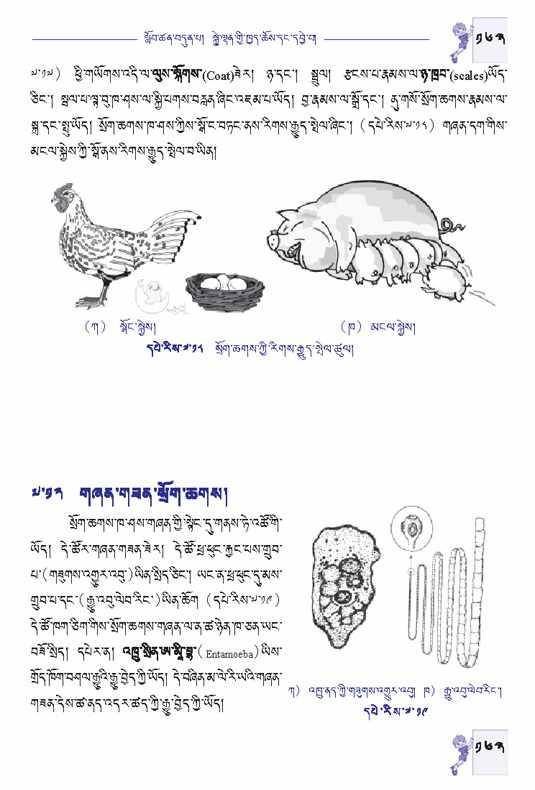 སློབ་ཚན་བདུན་པ། སྐྱེ་ལྡན་གྱི་ཁྱད་ཆོས་དང་དབྱེ་བ།
༡༦༣
༧.༡༧) ཕྱི་གཡོགས་འདི་ལ་ལུས་སྐོགས་(Coat)ཟེར། ཉ་དང་། སྦྲུལ། རྩངས་པ་རྣམས་ལ་ཉ་ཁྲབ་(scales)ཡོད་
ཅིང་། སྦལ་པ་ལྟ་བུ་ཁ་ཤས་ལ་སྐྱི་པགས་བརླན་ཞིང་འཇམ་པ་ཡོད། བྱ་རྣམས་ལ་སྒྲོ་དང་། ནུ་གསོ་སྲོག་ཆགས་རྣམས་ལ་
སྐྲ་དང་སྤུ་ཡོད། སྲོག་ཆགས་ཁ་ཤས་ཀྱིས་སྒོ་ང་བཏང་ནས་རིགས་རྒྱུད་སྤེལ་ཞིང་། (དཔེ་རིས་༧.༡༨) གཞན་དག་གིས་
མངལ་སྐྱེས་ཀྱི་སྒོ་ནས་རིགས་རྒྱུད་སྤེལ་བ་ཡིན།
(ཀ) སྒོང་སྐྱེས།
(ཁ) མངལ་སྐྱེས།
དཔེ་རིས་༧.༡༨ སྲོག་ཆགས་ཀྱི་རིགས་རྒྱུད་སྤེལ་ཚུལ།
༧.༡༣ གཞན་གཟན་སྲོག་ཆགས།
སྲོག་ཆགས་ཁ་ཤས་གཞན་གྱི་སྟེང་དུ་གནས་ཏེ་འཚོ་གི་
ཡོད། དེ་ཚོར་གཞན་གཟན་ཟེར། དེ་ཚོ་ཕྲ་ཕུང་རྐྱང་པས་གྲུབ་
པ་(གཟུགས་འགྱུར་འབུ་)ཡིན་སྲིད་ཅིང་། ཡང་ན་ཕྲ་ཕུང་དུ་མས་
གྲུབ་པ་དང་(རྒྱུ་འབུ་ལེབ་རིང་)ཡིན་ཆོག (དཔེ་རིས་༧.༡༩)
དེ་ཚོ་ཁག་ཅིག་གིས་སྲོག་ཆགས་གཞན་ལ་ན་ཚ་ཉེན་ཁ་ཅན་ཡང་
བཟོ་སྲིད། དཔེར་ན། འཁྲུ་སྲིན་ཨ་མཱི་བྷ་(Entamoeba)ཡིས་
གྲོད་ཁོག་བཤལ་རྒྱུའི་རྒྱུ་བྱེད་ཀྱི་ཡོད། དེ་བཞིན་མ་ལེ་རི་ཡའི་གཞན་
གཟན་དེས་ཚ་ནད་འདར་ཚད་ཀྱི་རྒྱུ་བྱེད་ཀྱི་ཡོད།
ཀ) འཁྲུ་ནད་ཀྱི་གཟུགས་འགྱུར་འབུ། ཁ) རྒྱུ་འབུ་ལེབ་རིང་།
དཔེ་རིས་༧.༡༩
༡༦༣